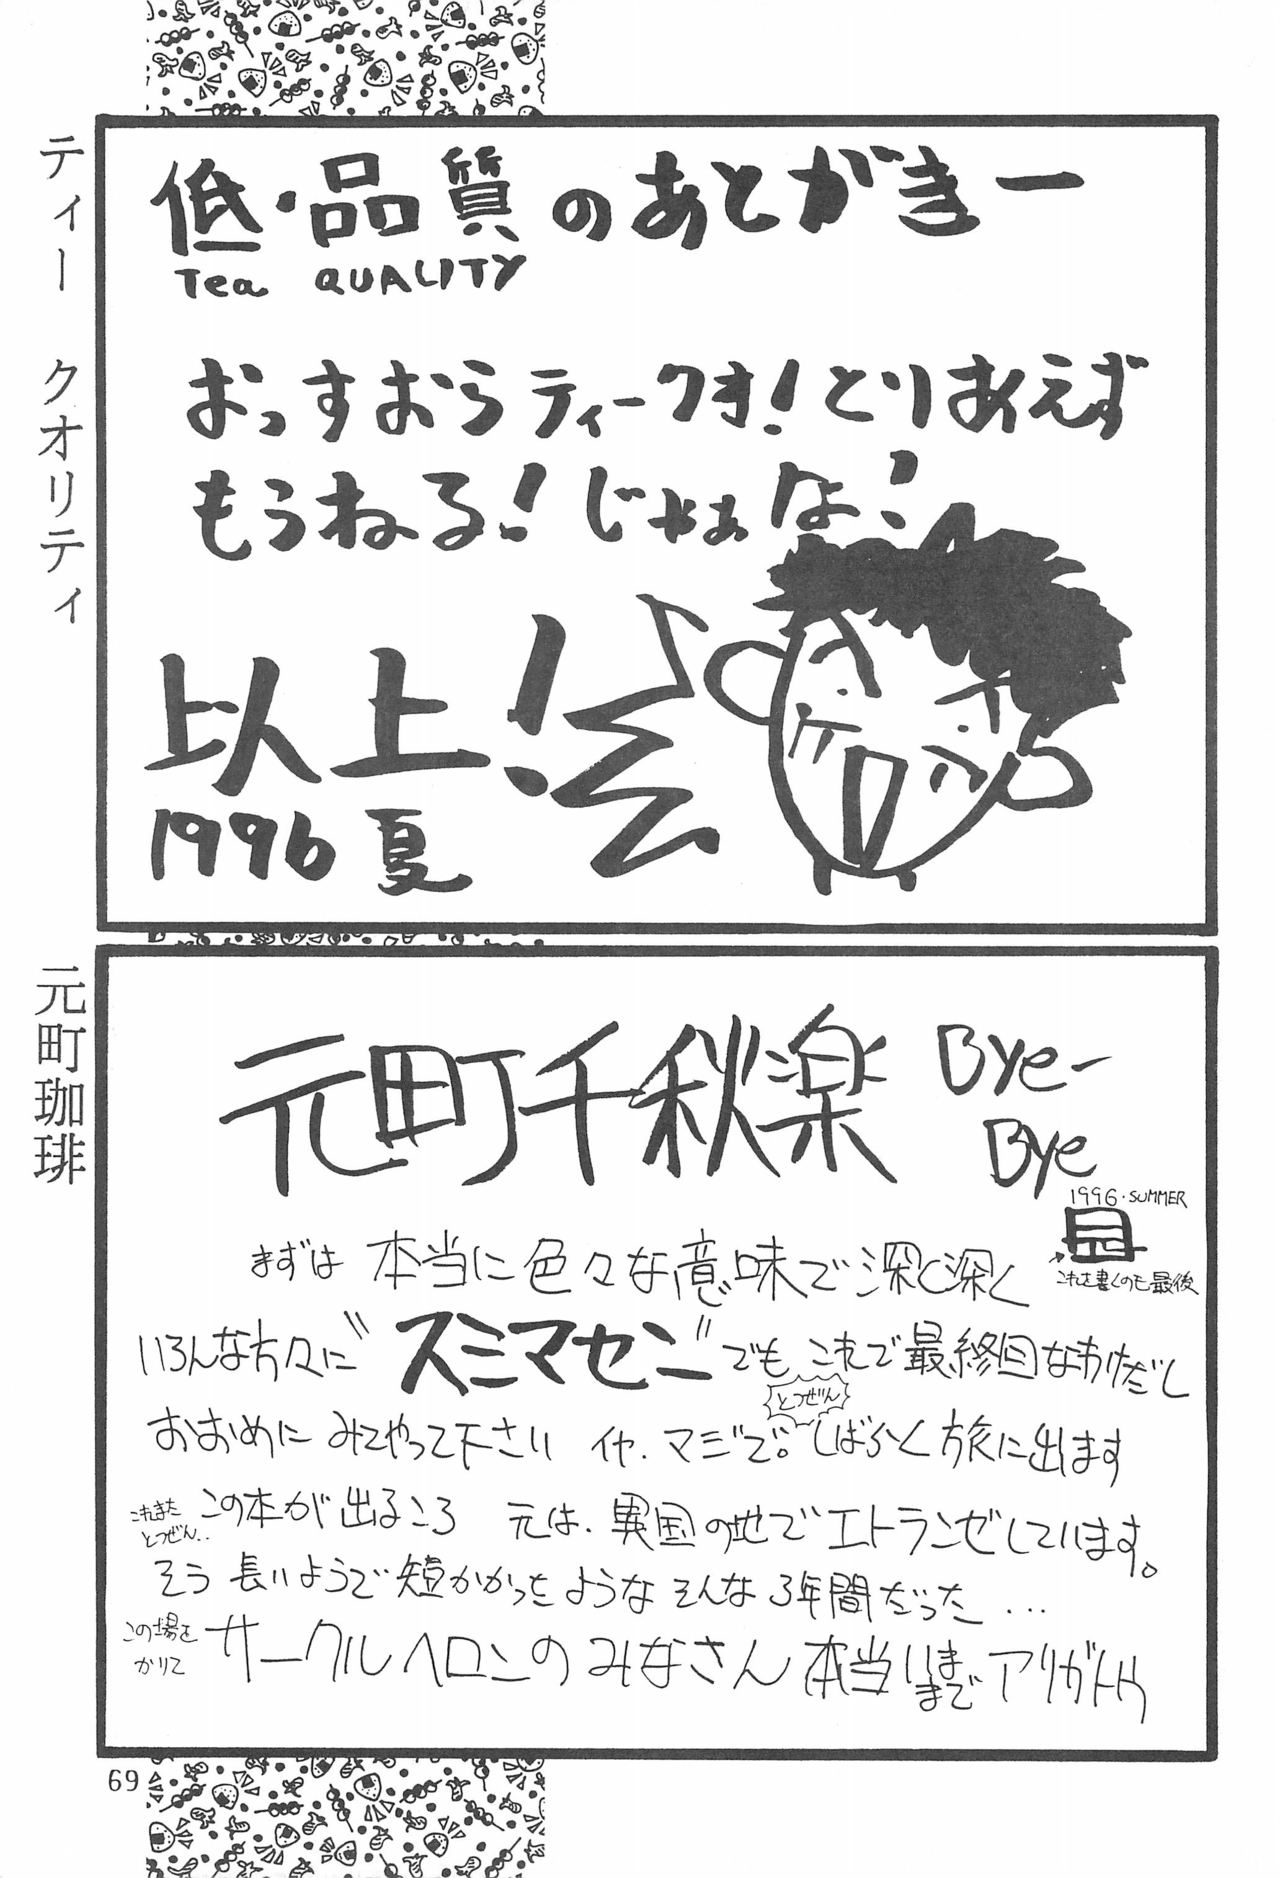 ティー クオリティ
低・品質のあとがきー
Tea QUALITY
おっすおらティークオ！とりあえず
もうねる！じゃあな！
以上！
1996 夏
元町珈琲
元町千秋楽
Bye-
Bye
1996・SUMMER
これを書くのも最後
まずは 本当に色々な意味で深く深く
いろんな方々に〝スミマセン〟でも これで最終回なわけだし
とつぜん
おおめに みてやって下さい イヤ、マジで。しばらく旅に出ます
これまた
とつぜん..
この本が出るころ 元は、異国の地でエトランゼしています。
そう 長いようで短かかったような そんな3年間だった...
この場を
かりて
サークルヘロンのみなさん 本当いままで アリガトウ
69